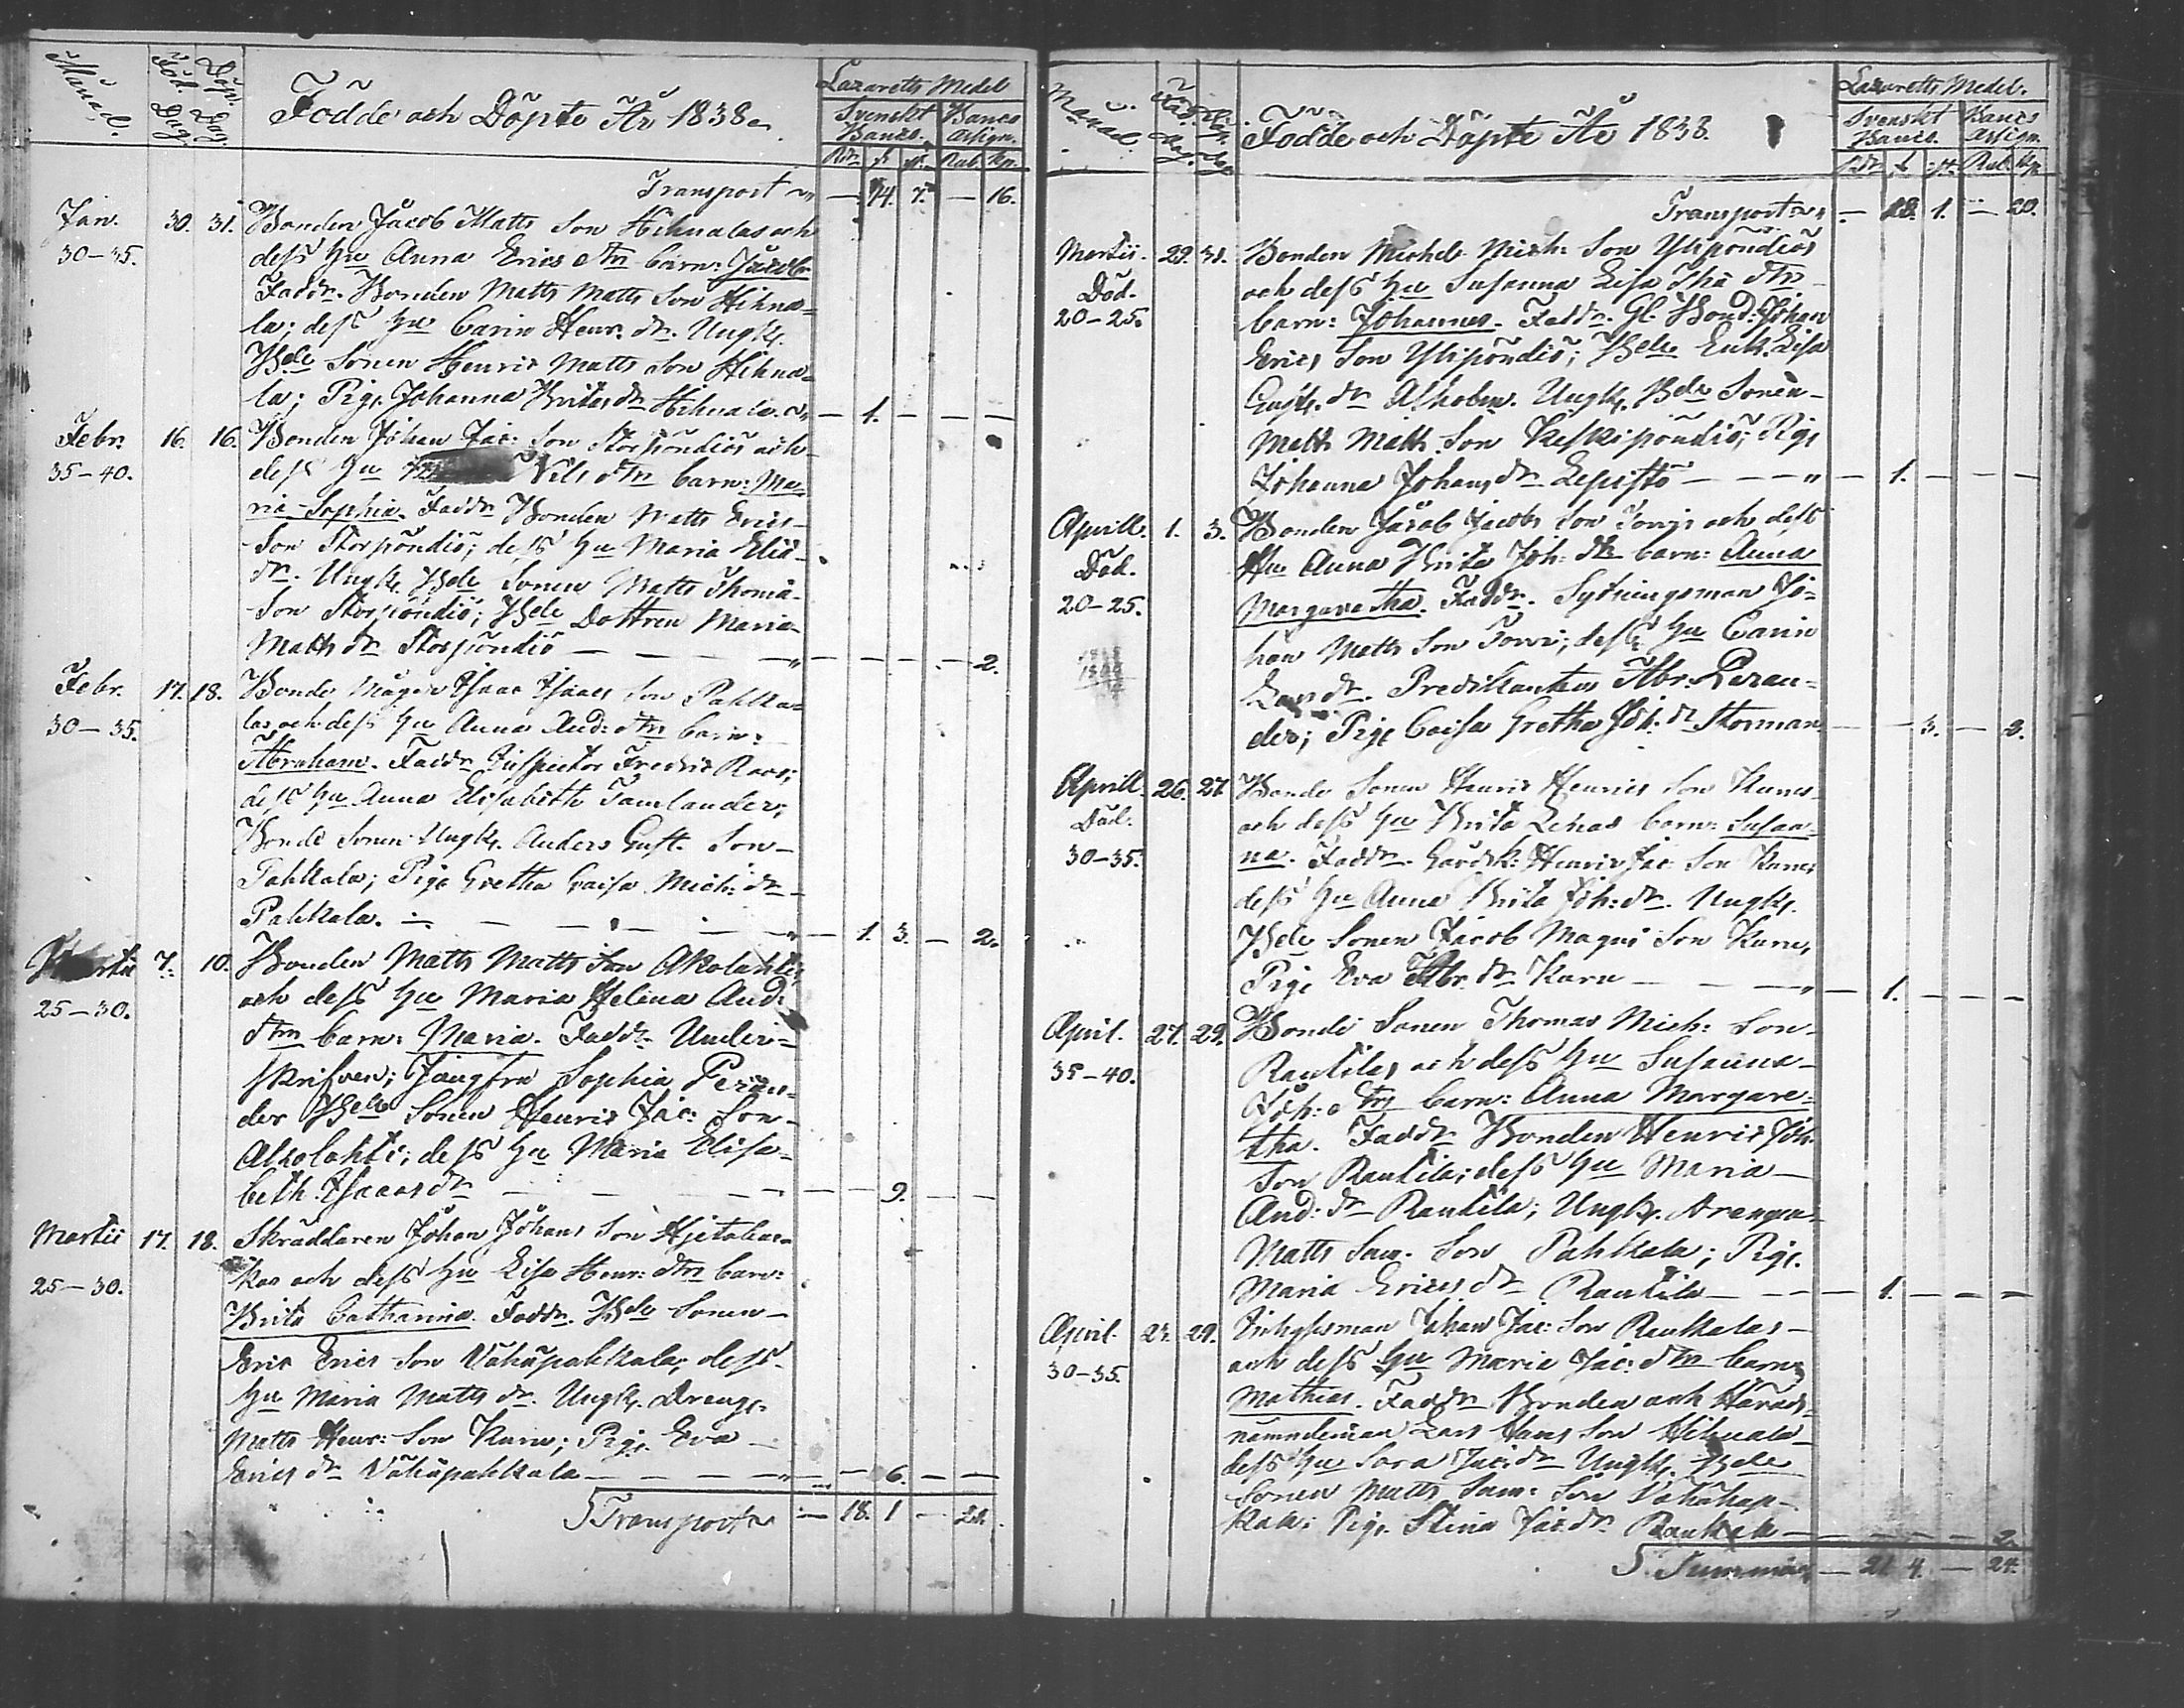 Månad.
Född. Dag.
Döp. Dag.
Födde och Döpte År 1838.
Lazaretts Medel
Svenskt Banco.
Banco Assign.
Rdr. s. r. Rub. Kp.
Transport — 14. 7. — 16.
Jan. 30. 31. Bonden Jacob Matts Son Hihnalas och
30–35. dess Hu Anna Erics dtrs barn: Jacob.
Faddr. Bonden Matts Matts Son Hihna-
la; dess Hu Carin Henr. dr. Ungk.
Bde Sonen Henric Matts Son Hihna-
la; Pig. Johanna Brita dr Hihnala. — 1. — — —
Febr. 16. 16. Bonden Johan Jac: Son Storpöndiös och
35–40. dess Hu Nils dtrs barn: Ma-
ria Sophia. Faddr Bonden Matts Erics
Son Storpöndiö; dess Hu Maria Eliæ
dr. Ungk. Bde Sonen Matts Thomæ
Son Storpöndiö; Bde Dottren Maria
Matts dr Storpöndiö — — — — — 2.
Febr. 17. 18. Bonde Mågen Isaac Isaacs Son Pahka-
30–35. las och dess Hu Anna And: dtrs barn:
Abraham. Faddr Inspector Fredric Roos;
dess Hu Anna Elisabeth Tamlander;
Bonde Sonen Ungk. Anders Gust. Son
Pahkala; Pige Gretha Caisa Mich: dr
Pahkala. — — — — 1. 3. — 2.
Martii 7. 10. Bonden Matts Matts Son Akolahtis
25–30. och dess Hu Maria Helena And:
dtrs barn: Maria. Faddr. Under-
skrifven; Jungfru Sophia Peran-
der Bde Sonen Henric Jac: Son
Akolahti; dess Hu Maria Elisa-
beth Isaacs dr — — — — — 9. — —
Martii 17. 18. Skräddaren Johan Johans Son Hjetalas-
25–30. kas och dess Hu Lisa Henr: dtrs barn:
Brita Catharina. Faddr. Bde Sonen
Eric Erics Son Vähäpahkala; dess
Hu Maria Matts dr. Ungk. Drengs.
Matts Henr: Son Kuru; Pige Eva
Erics dr Vähäpahkala — — — — 6. — —
Transport — 18. 1 — 20.
Månad.
Född. Dag.
Döp. Dag.
Födde och Döpte År 1838.
Lazaretts Medel.
Svenskt Banco.
Banco Assign.
Rdr. s. r. Rub. Kp.
Transport — 18. 1. — 20.
Martii. 29. 31. Bonden Michel Mich: Son Ylipöndiös
Död. och dess Hu Susanna Lisa dtrs
20–25. barn: Johannes. Faddr. Gl. Bond: Johan
Erics Son Ylipöndiö; Bde Enk. Lisa
Gust. dr Alholm. Ungk. Bde Sonen
Matts Matts Son Keskipöndiö; Pige
Johanna Johans dr Lepistö — — — — 1. — — —
Aprill. 1. 3. Bonden Jacob Jacobs Son Torvis och dess
Död. Hu Anna Brita Joh. dtrs barn: Anna
20–25. Margaretha. Faddr. Sytningsman Jo-
han Matts Son Torvi; dess Hu Carin
Lars dr. Predikanten Abr. Peran-
der; Pige Caisa Gretha Joh: dr Storman — — 3. — 2.
Aprill. 26. 27. Bonde Sonen Henric Henrics Son Kurus
Död. och dess Hu Brita Lenas barn: Susan-
30–35. na. Faddr. Gårdsk: Henric Jac: Son Kuru;
dess Hu Anna Brita Joh: dr. Ungk.
Bde Sonen Jacob Magni Son Kuru,
Pige Eva Abr. dr Kuru — — — — 1. — — —
April. 27. 29. Bonde Sonen Thomas Mich: Son
35–40. Rautilas och dess Hu Susanna
Joh: dtrs barn: Anna Margare-
tha. Faddr Bonden Henric Joh.
Son Rautila; dess Hu Maria
And: dr Rautila; Ungk.
Matts Sam. Son Pahkala; Pige.
Maria Erics dr Rautila — — — 1. — — —
April. 27. 29. Inhysman Johan Jac: Son Raukalas
30–35. och dess Hu Maria Jac: dtrs barn:
Mathias. Faddr Bonden och Härads-
nämndeman Lars Hans Son Hihnala
dess Hu Sara Jac: dr Ungk. Bde
Sonen Matts Sam: Son Vähähap-
kala; Pige. Stina Jac dr Raukala — — — — 2.
Summa — 21 4. — 24.